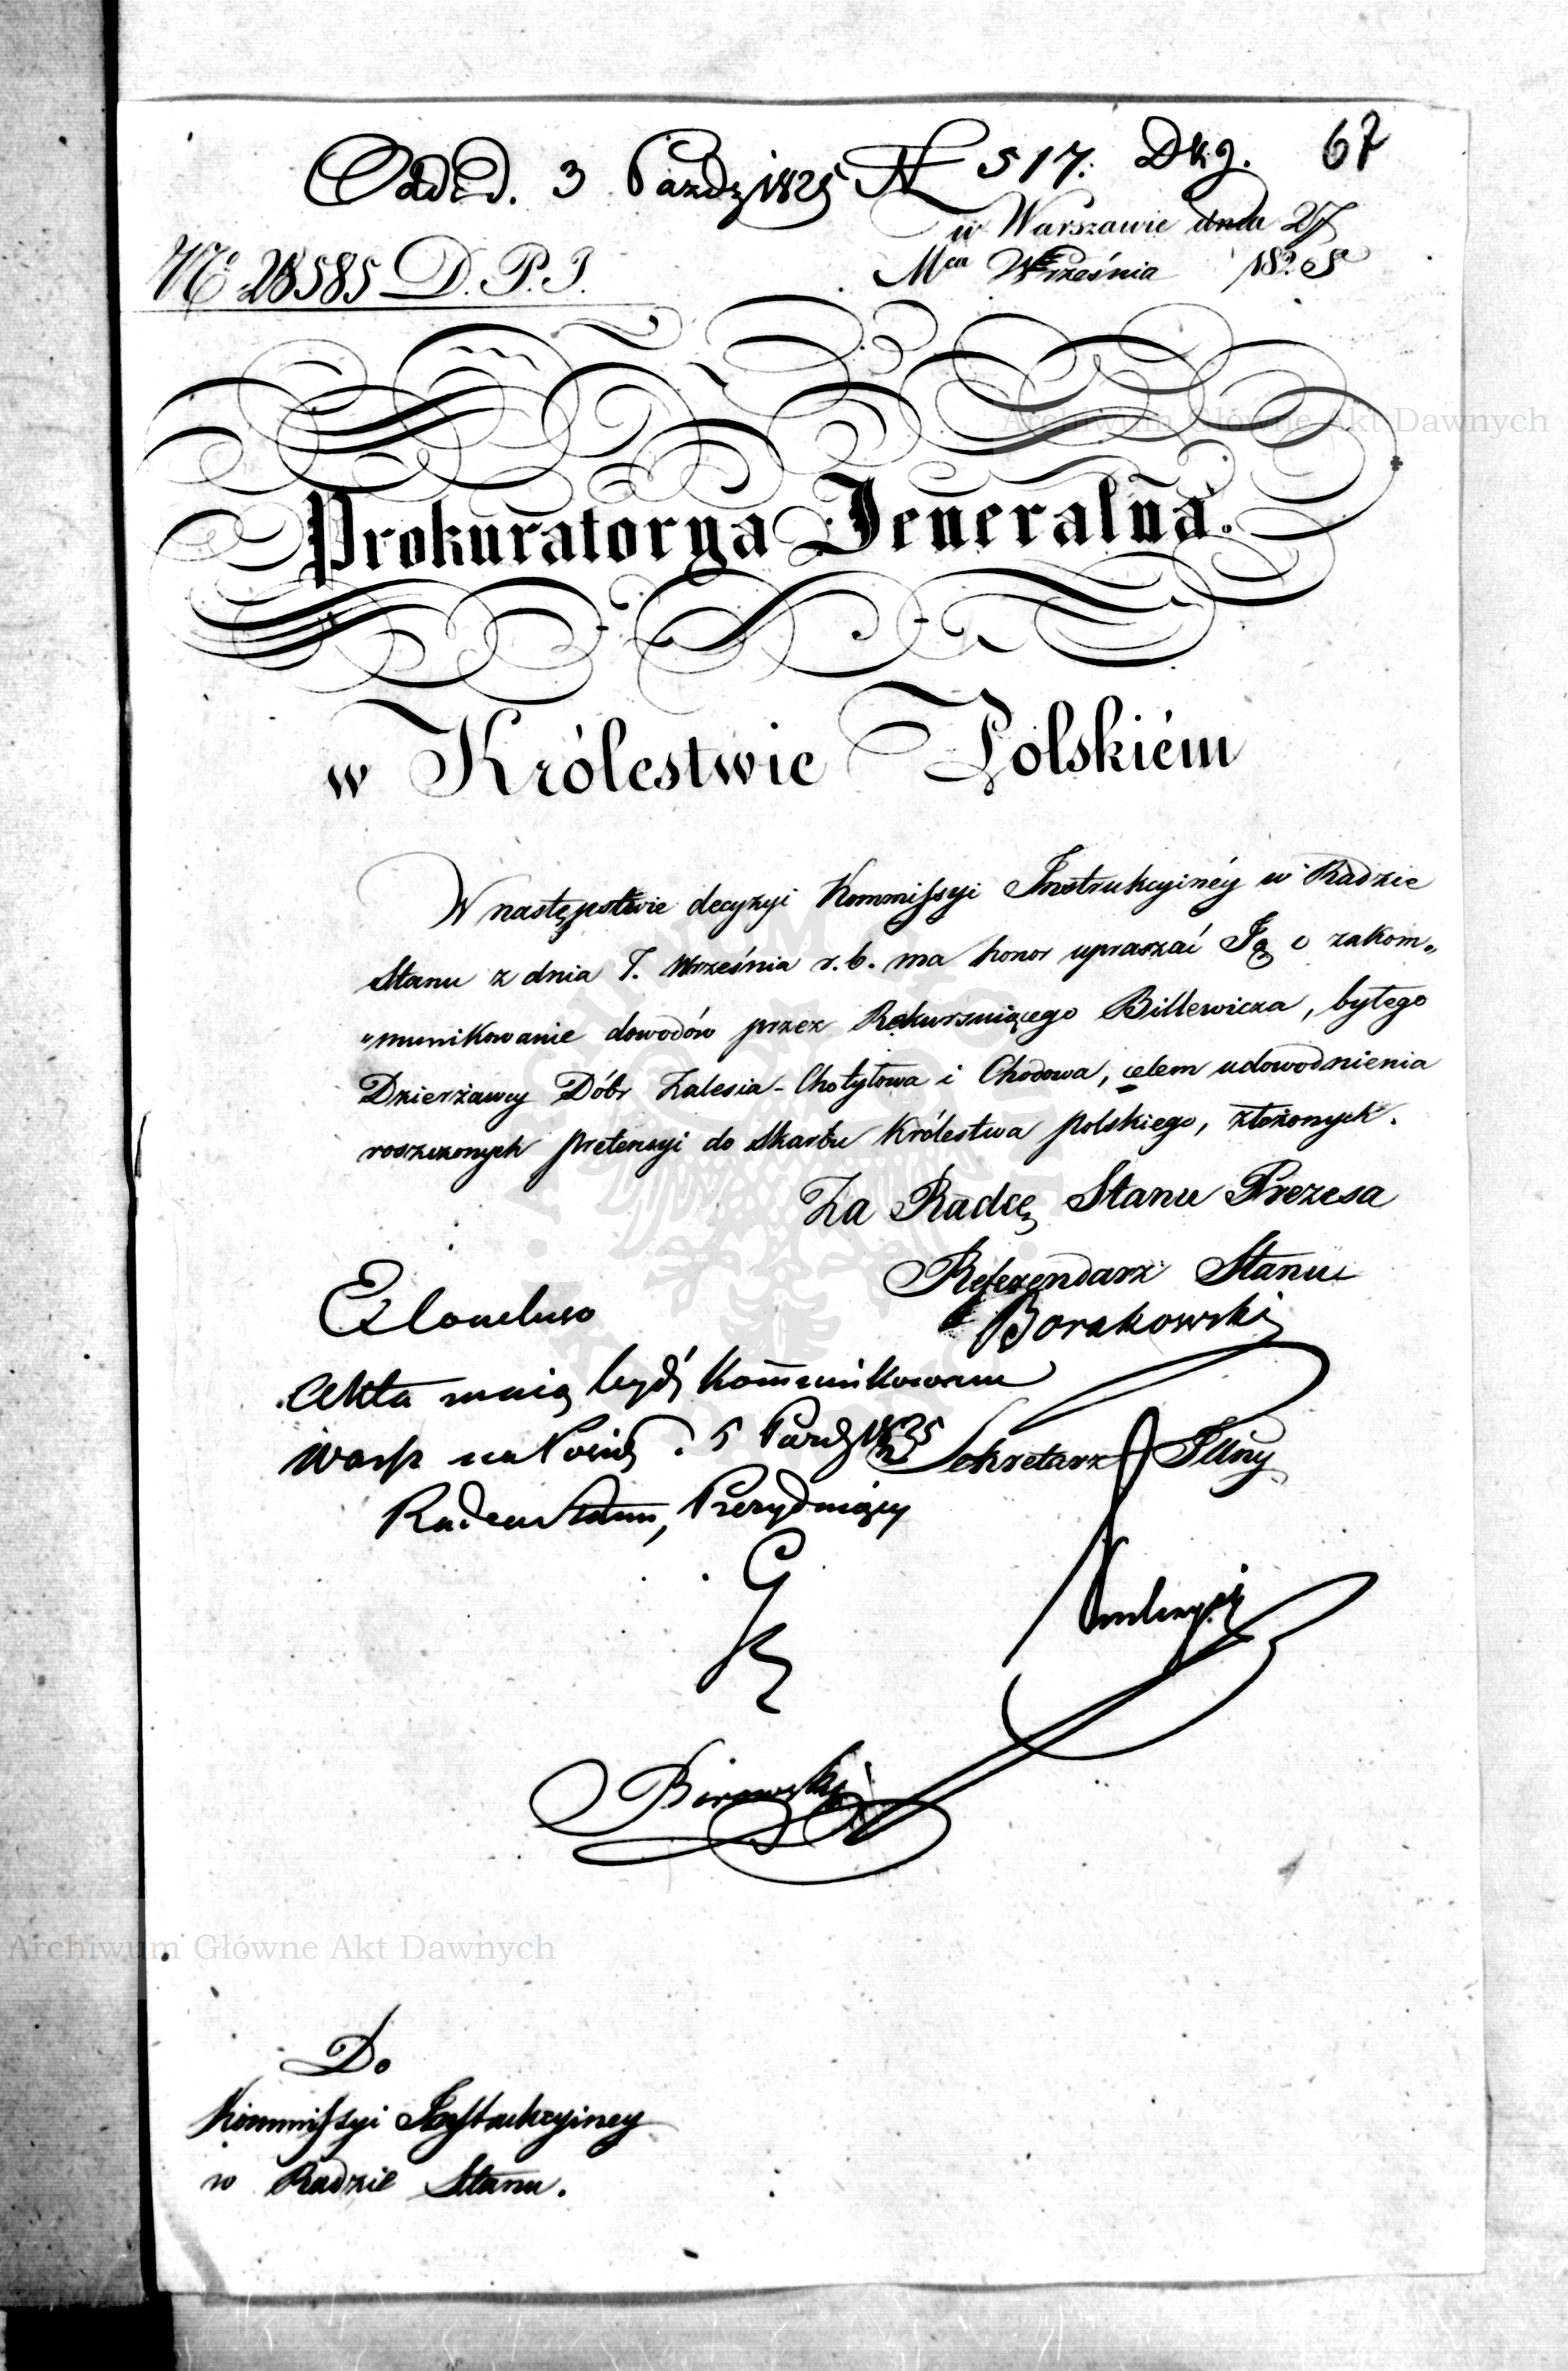 Odd d. 3 Paźdz 1825 N 517. Dkg. 67
w Warszawie dnia 27
Mca Września 1825
No 28585 D.P.J.
Archiwum Główne Akt Dawnych
Prokuratorya Jeneralna.
w Królestwie Polskiém
W następstwie decyzyi Kommissyi Instrukcyinéy w Radzie
Stanu z dnia 7. Września r.b. ma honor upraszać Ją o zakom„
„munikowanie dowodów przez Rekursuiącego Billewicza, byłego
Dzierżawcy Dóbr Zalesia-Chotyłowa i Chodowa, celem udowodnienia
roszczonych pretensyi do Skarbu Królestwa polskiego, złożonych.
Za Radcę Stanu Prezesa
Referendarz Stanu
Borakowski
Ex Concluso
Akta maią bydź kommunikowane
5 Paźdz 1825
Sekretarz Jlny
Radca Stanu, Prezyduiący
Archiwum Główne Akt Dawnych
Do
Kommissyi Instrukcyiney
w Radzie Stanu.